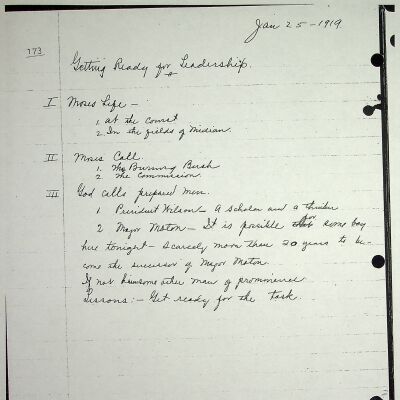 Jan 25-1919.
173
Getting Ready for Leadership.
I Moses Life -
1. At the court
2. In the fields of Midian.
II Moses Call.
1. The Burning Bush
2. The Commission.
III God calls prepared men.
1 President Wilson - A scholar and a thinker
2 Major Moton - It is possible for some boy
here tonight - scarcely more than 20 years to be-
come the successor of Major Moton.
If not him some other man of prominence
Lessons: - Get ready for the task.